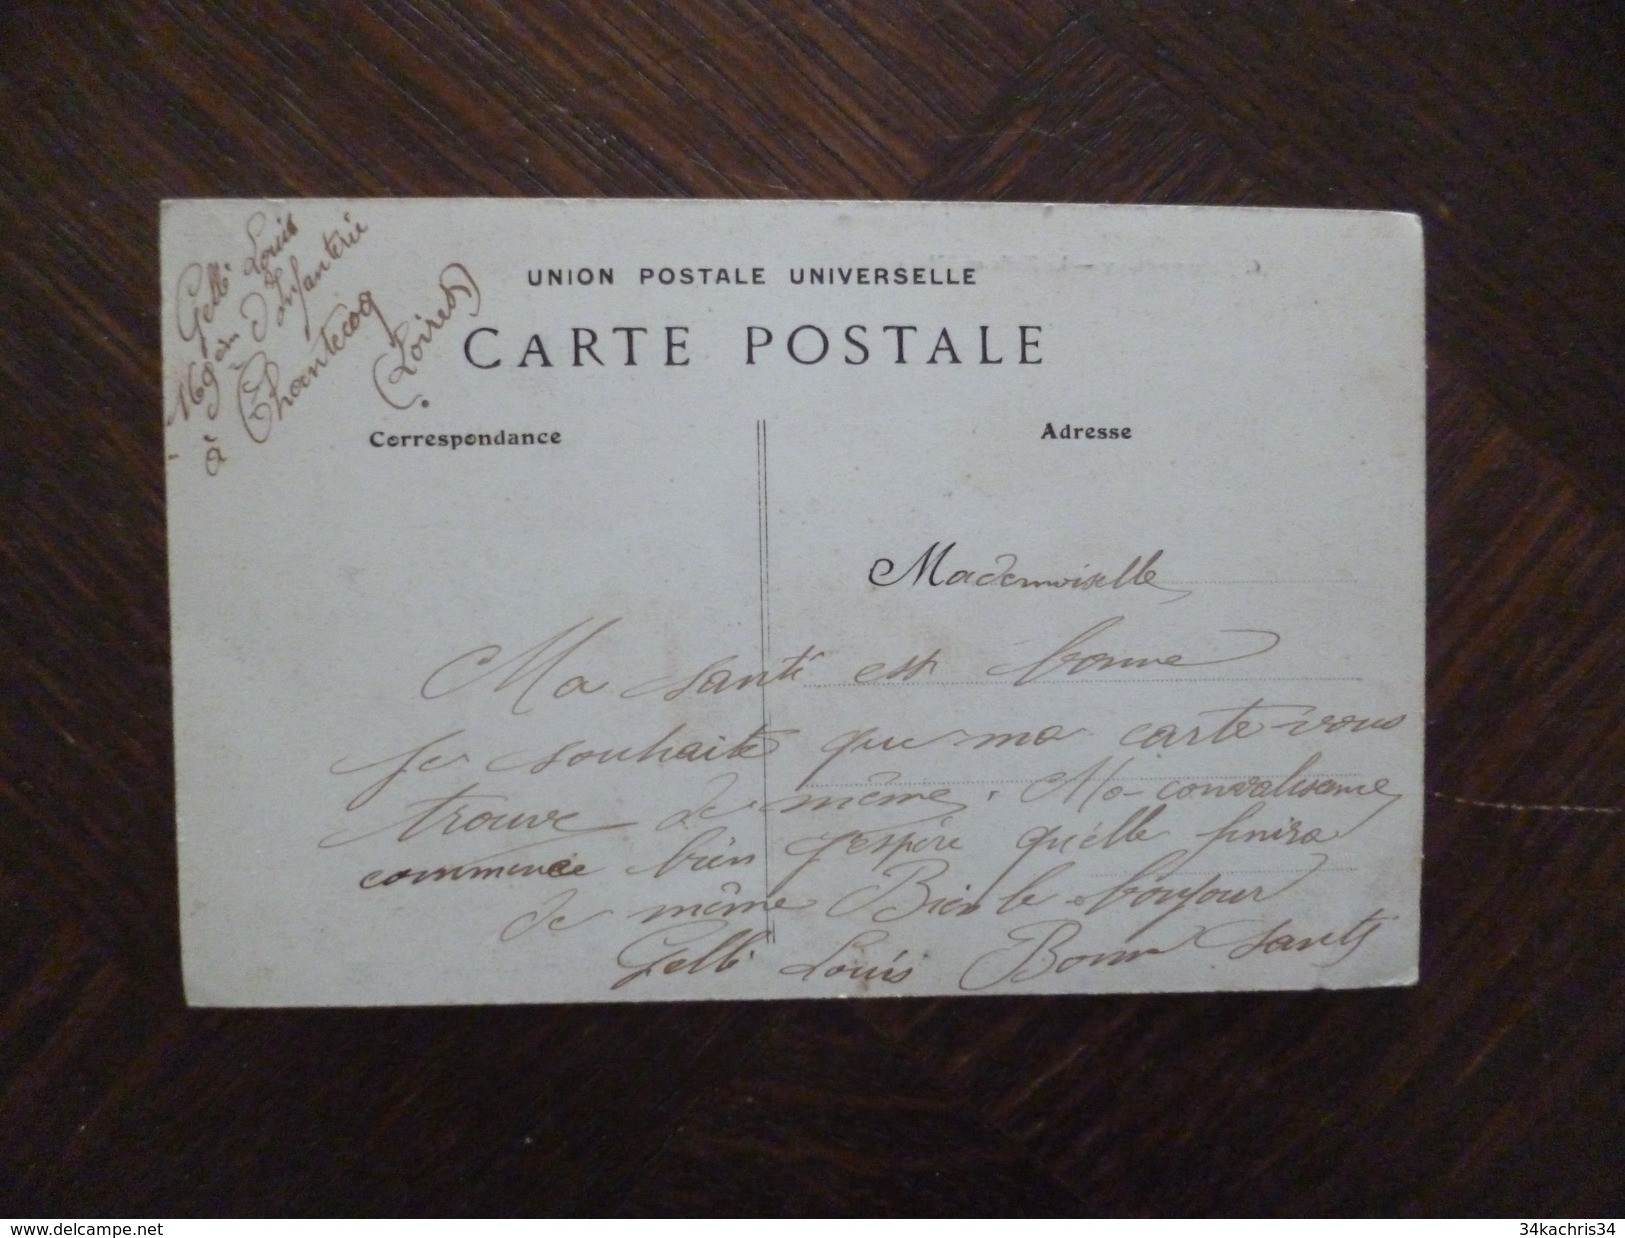 Gellé Louis
169em d'Infanterie
à Chantecoq
(Loiret)
UNION POSTALE UNIVERSELLE
CARTE POSTALE
Correspondance
Adresse
Mademoiselle
Ma santé est bonne
je souhaite que ma carte vous
trouve de même. Ma convalisence
commence bien j'espère qu'elle finira
de même Bien le bonjour
Gellé Louis Bonne Santé
www.delcampe.net
34kachris34